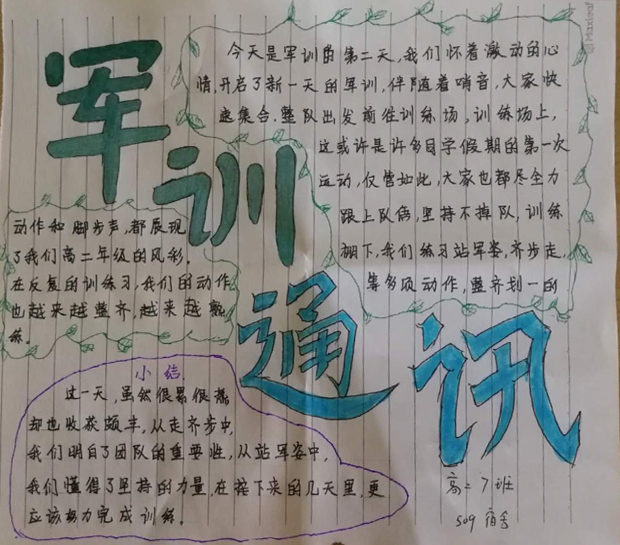 军训通讯
今天是军训的第二天,我们怀着激动的心
情,开启了新一天的军训,伴随着哨音,大家快
速集合.整队出发前往训练场,训练场上,
这或许是许多同学假期的第一次
运动,仅管如此,大家也都尽全力
跟上队伍,坚持不掉队,训练
棚下,我们练习站军姿,齐步走,
等多项动作,整齐划一的
动作和脚步声,都展现
了我们高二年级的风彩.
在反复的训练习,我们的动作
也越来越整齐,越来越熟
练.
小结
这一天,虽然很累很
却也收获颇丰,从走齐步中,
我们明白了团队的重要性,从站军姿中,
我们懂得了坚持的力量.在接下来的几天里,更
应该努力完成训练。
高二7班
509宿舍